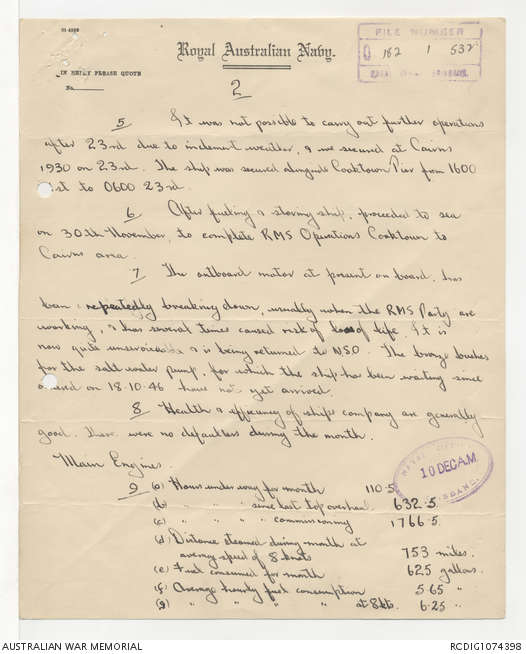 FILE NUMBER
162 1 532
Royal Australian Navy.
IN REPLY PLEASE QUOTE
No.
2
5 It was not possible to carry out further operations
after 23rd due to inclement weather, & we secured at Cairns
1930 on 23rd. The ship was secured alongside Cooktown Pier from 1600
1st to 0600 23rd.
6 After fueling & storing ship, proceeded to sea
on 30th November, to complete RMS Operations Cooktown to
Cairns area.
7 The outboard motor at present on board, has
been repeatedly breaking down, usually when the RMS Party are
working, & has several times caused risk of loss of life. It is
now quite unserviceable & is being returned to NSO. The bronze bushes
for the salt water pump, for which the ship has been waiting since
on 18-10-46 have not yet arrived.
8 Health & efficiency of ships company are generally
good. There were no defaulters during the month.
10 DEC A.M.
Main Engines.
9 (a) Hours under way for month 110.5
(b) " " " since last top overhaul 632.5
(c) " " " " commissioning 1766.5
(d) Distance steamed during month at
average speed of 8 knots 753 miles.
(e) Fuel consumed for month 625 gallons.
(f) Average hourly fuel consumption 5.65 "
(g) " " " " at 8 kts. 6.25 "
AUSTRALIAN WAR MEMORIAL
RCDIG1074398